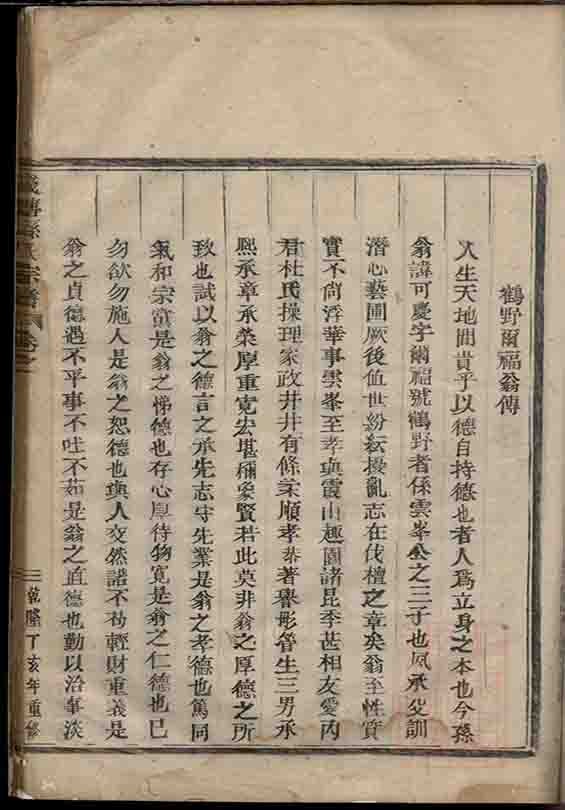 鶴野爾福翁傳
人生天地間貴乎以德自持德也者人爲立身之本也今孫
翁諱可慶字爾福號鶴野者係雲峯公之三子也夙承父訓
潛心藝圃厥後值世紛紜擾亂志在伐檀之章矣翁至性質
實不尚浮華事雲峯至孝與霞山趣園諸昆季甚相友愛內
君杜氏操理家政井井有條柔順孝恭著譽彤管生三男承
熙承章承榮厚重寬宏堪稱象賢若此莫非翁之厚德之所
致也試以翁之德言之承先志守先業是翁之孝德也篤同
氣和宗黨是翁之悌德也存心厚待物寬是翁之仁德也已
勿欲勿施人是翁之恕德也與人交然諾不苟輕財重義是
翁之貞德遇不平事不吐不茹是翁之直德也勤以治事淡
孫氏宗譜 卷之
乾隆丁亥年重修